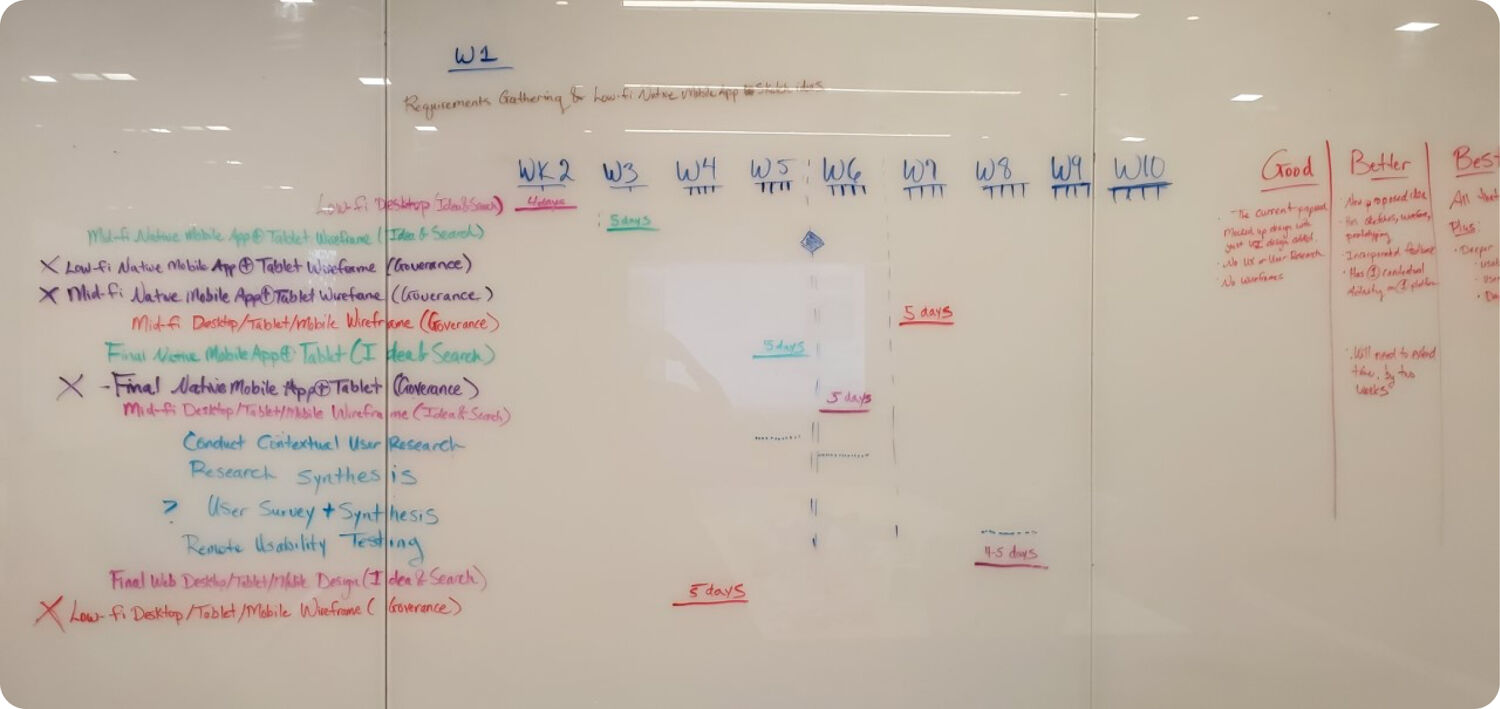 W1
Requirements Gathering & Low-fi Native Mobile App Sketch ideas
WK 2 W3 W4 W5 W6 W7 W8 W9 W10
Low-fi Desktop (Idea & Search) 4 days
Mid-fi Native Mobile App + Tablet Wireframe (Idea & Search) 5 days
X Low-fi Native Mobile App + Tablet Wireframe (Goverance)
X Mid-fi Native Mobile App + Tablet Wirefame (Goverance)
Mid-fi Desktop/Tablet/Mobile Wireframe (Goverance) 5 days
Final Native Mobile App + Tablet (Idea & Search) 5 days
X - Final Native Mobile App + Tablet (Goverance)
Mid-fi Desktop/Tablet/Mobile Wireframe (Idea & Search) 5 days
Conduct Contextual User Research
Research Synthesis
? User Survey + Synthesis
Remote Usability Testing
Final Web Desktop/Tablet/Mobile Design (Idea & Search) 4-5 days
X Low-fi Desktop/Tablet/Mobile Wireframe (Goverance) 5 days
Good
· The current proposed
Mocked up design with
just VIZ design added.
· No UX or User Research
· No Wireframes
Better
· New proposed idea
· Has sketches, wireframes,
prototyping
· Incorporated feedback
· Has 1 contextual
activity on 1 platform
· Will need to extend
time, by two
weeks
Best
All that
Plus:
· Deeper